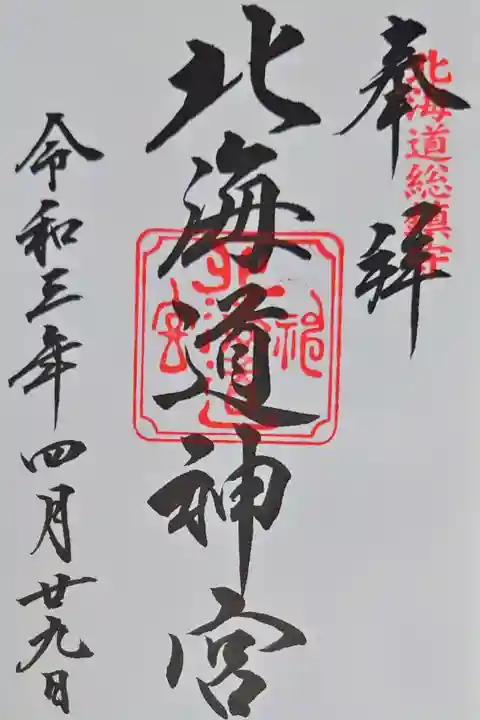 奉拝
北海道総鎮守
北海道神宮
北海道神宮
令和三年四月廿九日